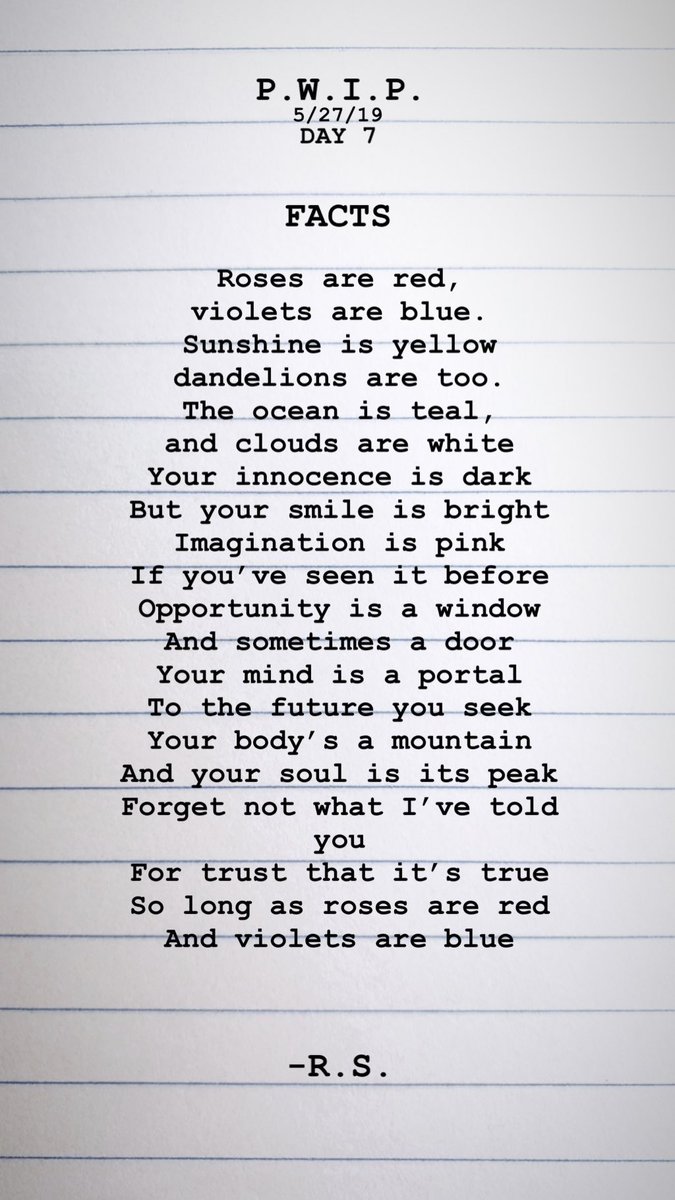 P.W.I.P.
5/27/19
DAY 7
FACTS
Roses are red,
violets are blue.
Sunshine is yellow
dandelions are too.
The ocean is teal,
and clouds are white
Your innocence is dark
But your smile is bright
Imagination is pink
If you’ve seen it before
Opportunity is a window
And sometimes a door
Your mind is a portal
To the future you seek
Your body’s a mountain
And your soul is its peak
Forget not what I’ve told
you
For trust that it’s true
So long as roses are red
And violets are blue
-R.S.